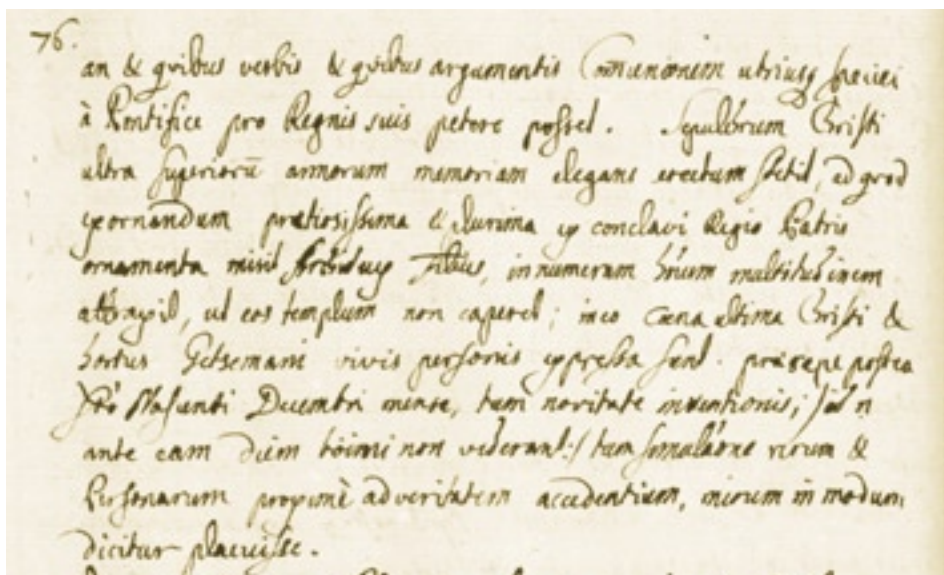 76.
an & qvibus verbis & qvibus argumentis Comunionem utriusq speciei
à Pontifice pro Regnis suis petere posset. Sepulchrum Christi
ultra superiorū annorum memoriam elegans erectum stetit, ad qvod
exornandum pretiosissima & plurima ex conclavi Regio Patris
ornamenta misit Filius, innumeram hōium multitudinem
attraxit, ut eos templum non caperet; in eo cæna ultima Christi &
hortus Getsemani vivis personis expressa sunt. præsepe postea
Decembri mense, tum novitate inventionis,
ante eam diem viderant:/ tum simulatione rerum &
Personarum proximè ad veritatem accedentium, mirum in modum
dicitur placuisse.